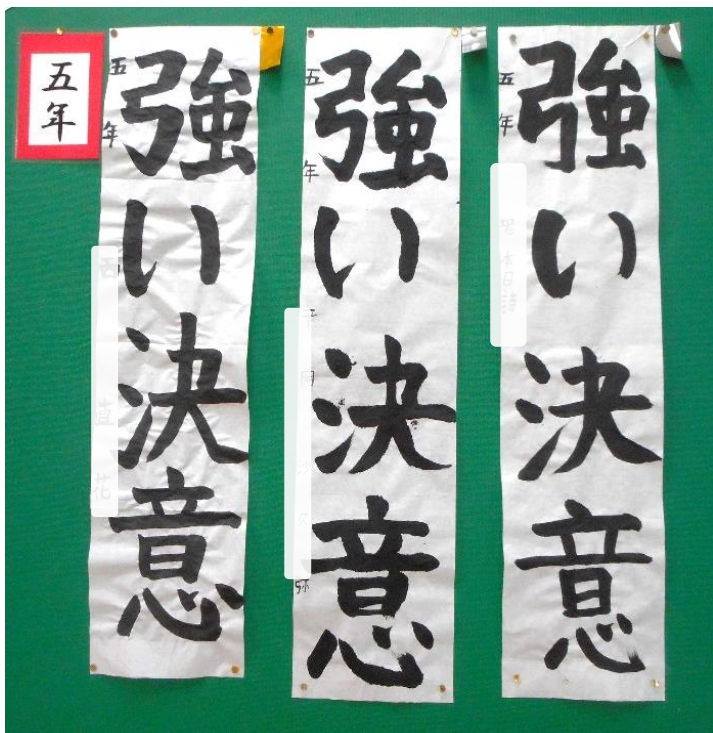 五年
強い決意
五年
強い決意
五年
強い決意
五年